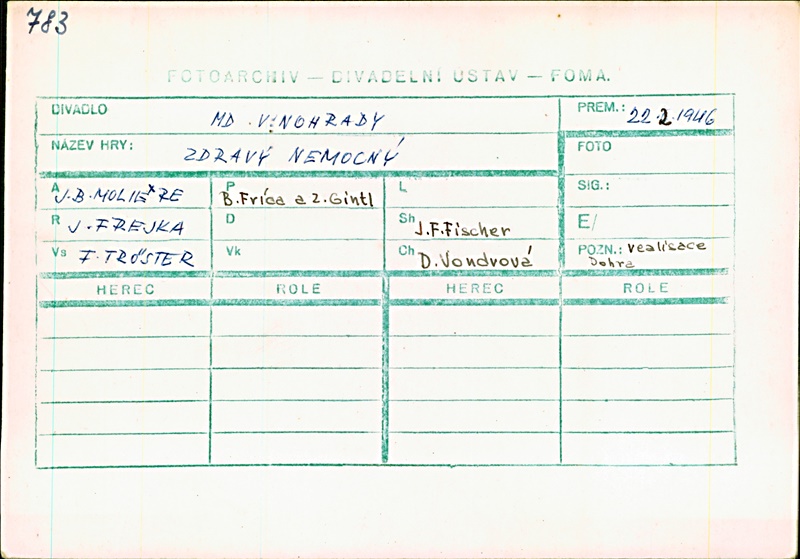 783
FOTOARCHIV — DIVADELNÍ ÚSTAV — FOMA.
DIVADLO MD VINOHRADY PREM.: 22.2.1946
NÁZEV HRY: ZDRAVÝ NEMOCNÝ FOTO
A J.B. MOLIERE P B. Fríca a Z. Gintl L SIG.:
R J. FREJKA D Sh J.F.Fischer E/
Vs F. TRÖSTER Vk Ch D. Vondrová POZN.: realisace
Dohra
HEREC ROLE HEREC ROLE